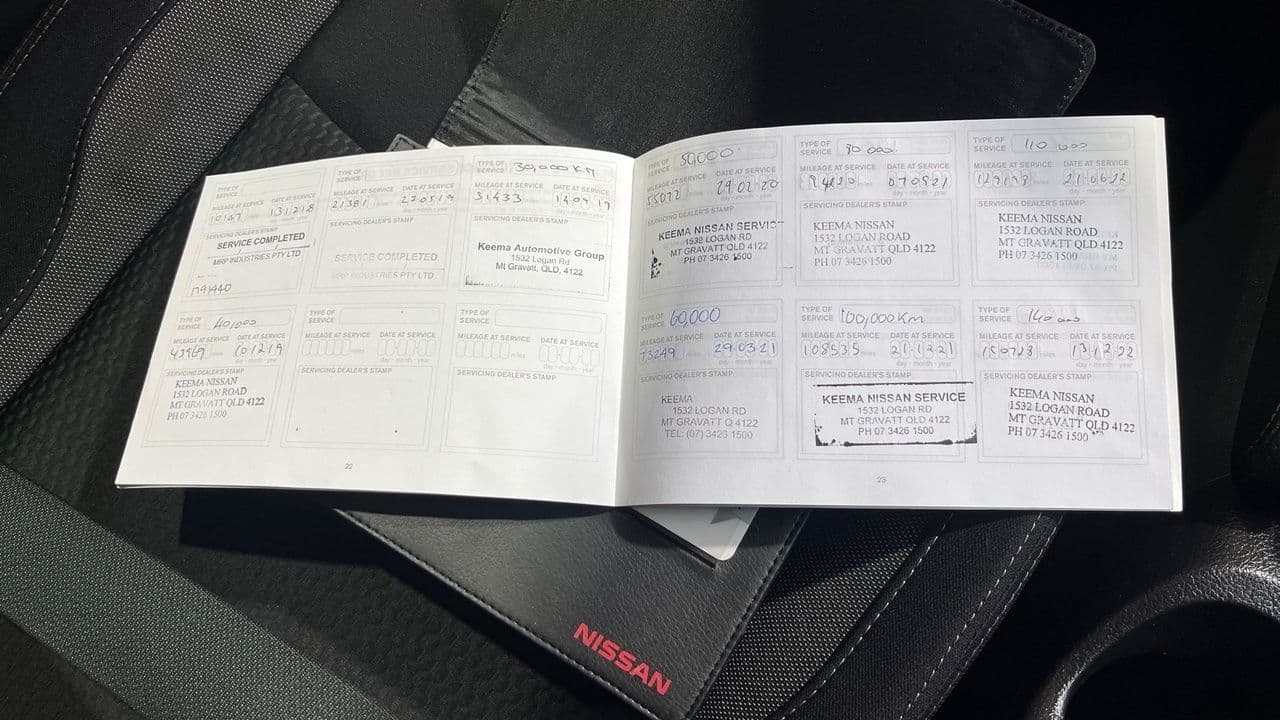 TYPE OF
SERVICE
MILEAGE AT SERVICE DATE AT SERVICE
10147 miles 131218
day - month - year
SERVICING DEALER'S STAMP
SERVICE COMPLETED
MRP INDUSTRIES PTY LTD
TYPE OF
SERVICE
MILEAGE AT SERVICE DATE AT SERVICE
21381 miles 270519
day - month - year
SERVICING DEALER'S STAMP
SERVICE COMPLETED
MRP INDUSTRIES PTY LTD.
TYPE OF
SERVICE 30,000 KM
MILEAGE AT SERVICE DATE AT SERVICE
31433 miles 140919
day - month - year
SERVICING DEALER'S STAMP
Keema Automotive Group
1532 Logan Rd
Mt Gravatt, QLD, 4122
TYPE OF
SERVICE 40,000
MILEAGE AT SERVICE DATE AT SERVICE
43969 miles 101219
day - month - year
SERVICING DEALER'S STAMP
KEEMA NISSAN
1532 LOGAN ROAD
MT GRAVATT QLD 4122
PH 07 3426 1500
TYPE OF
SERVICE
MILEAGE AT SERVICE DATE AT SERVICE
miles
day - month - year
SERVICING DEALER'S STAMP
TYPE OF
SERVICE
MILEAGE AT SERVICE DATE AT SERVICE
miles
day - month - year
SERVICING DEALER'S STAMP
22
TYPE OF
SERVICE 50,000
MILEAGE AT SERVICE DATE AT SERVICE
55072 miles 290220
day - month - year
SERVICING DEALER'S STAMP
KEEMA NISSAN SERVICE
1532 LOGAN RD
MT GRAVATT QLD 4122
PH 07 3426 1500
TYPE OF
SERVICE 80 000
MILEAGE AT SERVICE DATE AT SERVICE
miles 070821
day - month - year
SERVICING DEALER'S STAMP
KEEMA NISSAN
1532 LOGAN ROAD
MT GRAVATT QLD 4122
PH 07 3426 1500
TYPE OF
SERVICE 110 000
MILEAGE AT SERVICE DATE AT SERVICE
miles 210622
day - month - year
SERVICING DEALER'S STAMP
KEEMA NISSAN
1532 LOGAN ROAD
MT GRAVATT QLD 4122
PH 07 3426 1500
TYPE OF
SERVICE 60,000
MILEAGE AT SERVICE DATE AT SERVICE
73249 miles 290321
day - month - year
SERVICING DEALER'S STAMP
KEEMA
1532 LOGAN RD
MT GRAVATT Q 4122
TEL: (07) 3426 1500
TYPE OF
SERVICE 100,000Km
MILEAGE AT SERVICE DATE AT SERVICE
108535 miles 211221
day - month - year
SERVICING DEALER'S STAMP
KEEMA NISSAN SERVICE
1532 LOGAN RD
MT GRAVATT QLD 4122
PH 07 3426 1500
TYPE OF
SERVICE 140 000
MILEAGE AT SERVICE DATE AT SERVICE
150728 miles 131222
day - month - year
SERVICING DEALER'S STAMP
KEEMA NISSAN
1532 LOGAN ROAD
MT GRAVATT QLD 4122
PH 07 3426 1500
23
NISSAN